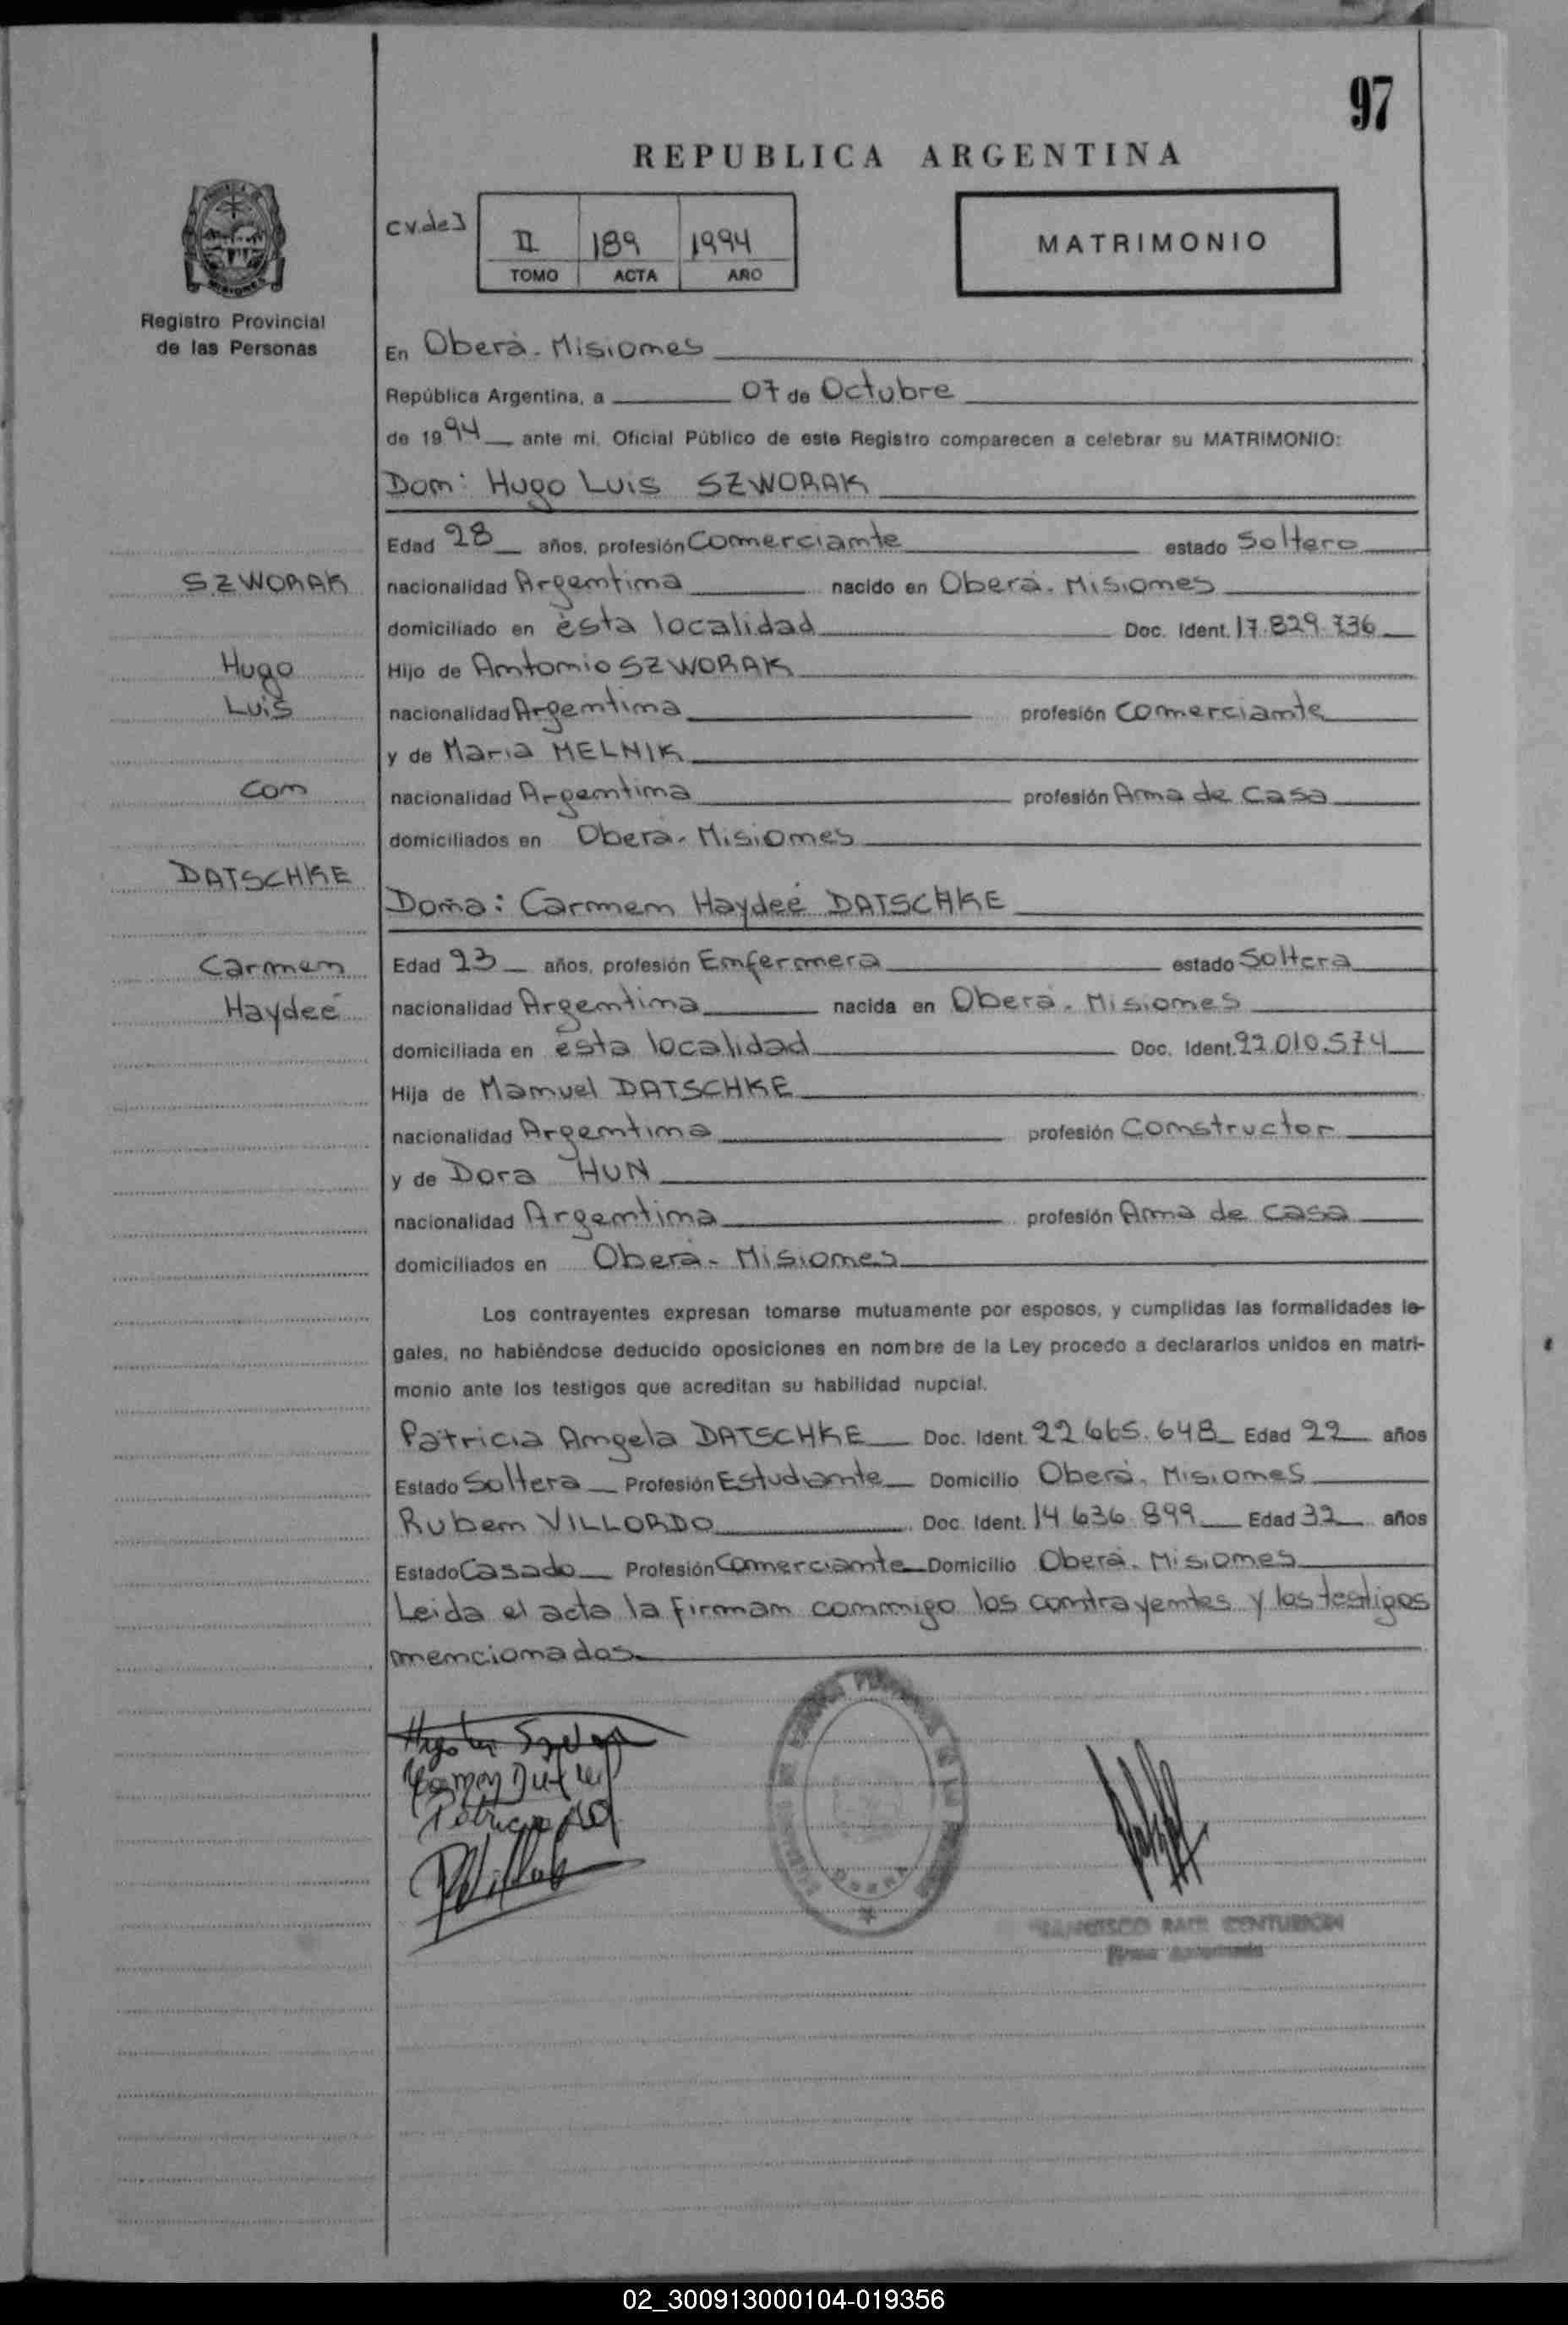 97
REPUBLICA ARGENTINA
II 189 1994
TOMO ACTA AÑO
MATRIMONIO
Registro Provincial
de las Personas
En Oberá - Misiones
República Argentina, a 07 de Octubre
de 1994 ante mi, Oficial Público de este Registro comparecen a celebrar su MATRIMONIO:
Don: Hugo Luis SZWORAK
Edad 28 años, profesión Comerciante estado Soltero
SZWORAK
nacionalidad Argentina nacido en Oberá - Misiones
domiciliado en ésta localidad Doc. Ident. 17.829.736
Hugo
Hijo de Antonio SZWORAK
Luis
nacionalidad Argentina profesión Comerciante
y de Maria MELNIK
con
nacionalidad Argentina profesión Ama de Casa
domiciliados en Oberá - Misiones
DATSCHKE
Doña: Carmen Haydeé DATSCHKE
Carmen
Edad 23 años, profesión Enfermera estado Soltera
Haydeé
nacionalidad Argentina nacida en Oberá - Misiones
domiciliada en ésta localidad Doc. Ident. 22.010.574
Hija de Manuel DATSCHKE
nacionalidad Argentina profesión Constructor
y de Dora HUN
nacionalidad Argentina profesión Ama de casa
domiciliados en Oberá - Misiones
Los contrayentes expresan tomarse mutuamente por esposos, y cumplidas las formalidades le-
gales, no habiéndose deducido oposiciones en nombre de la Ley procedo a declararlos unidos en matri-
monio ante los testigos que acreditan su habilidad nupcial.
Patricia Angela DATSCHKE Doc. Ident. 22.665.648 Edad 22 años
Estado Soltera Profesión Estudiante Domicilio Oberá - Misiones
Ruben VILLORDO Doc. Ident. 14.636.899 Edad 32 años
Estado Casado Profesión Comerciante Domicilio Oberá - Misiones
Leida el acta la firman conmigo los contrayentes y los testigos
mencionados.
CENTURION
02_300913000104-019356